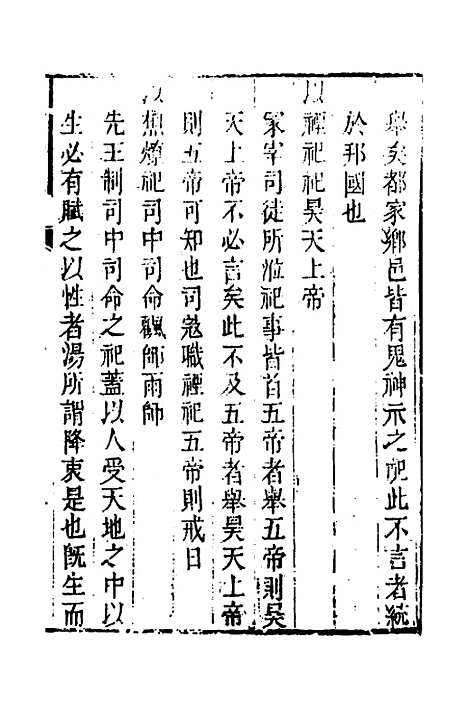 舉矣都家鄉邑皆有鬼神示之祀此不言者統
於邦國也
以禋祀祀昊天上帝
冢宰司徒所涖祀事皆首五帝者舉五帝則昊
天上帝不必言矣此不及五帝者舉昊天上帝
則五帝可知也司寇職禋祀五帝則戒日
以槱燎祀司中司命飌師雨師
先王制司中司命之祀蓋以人受天地之中以
生必有賦之以性者湯所謂降衷是也旣生而